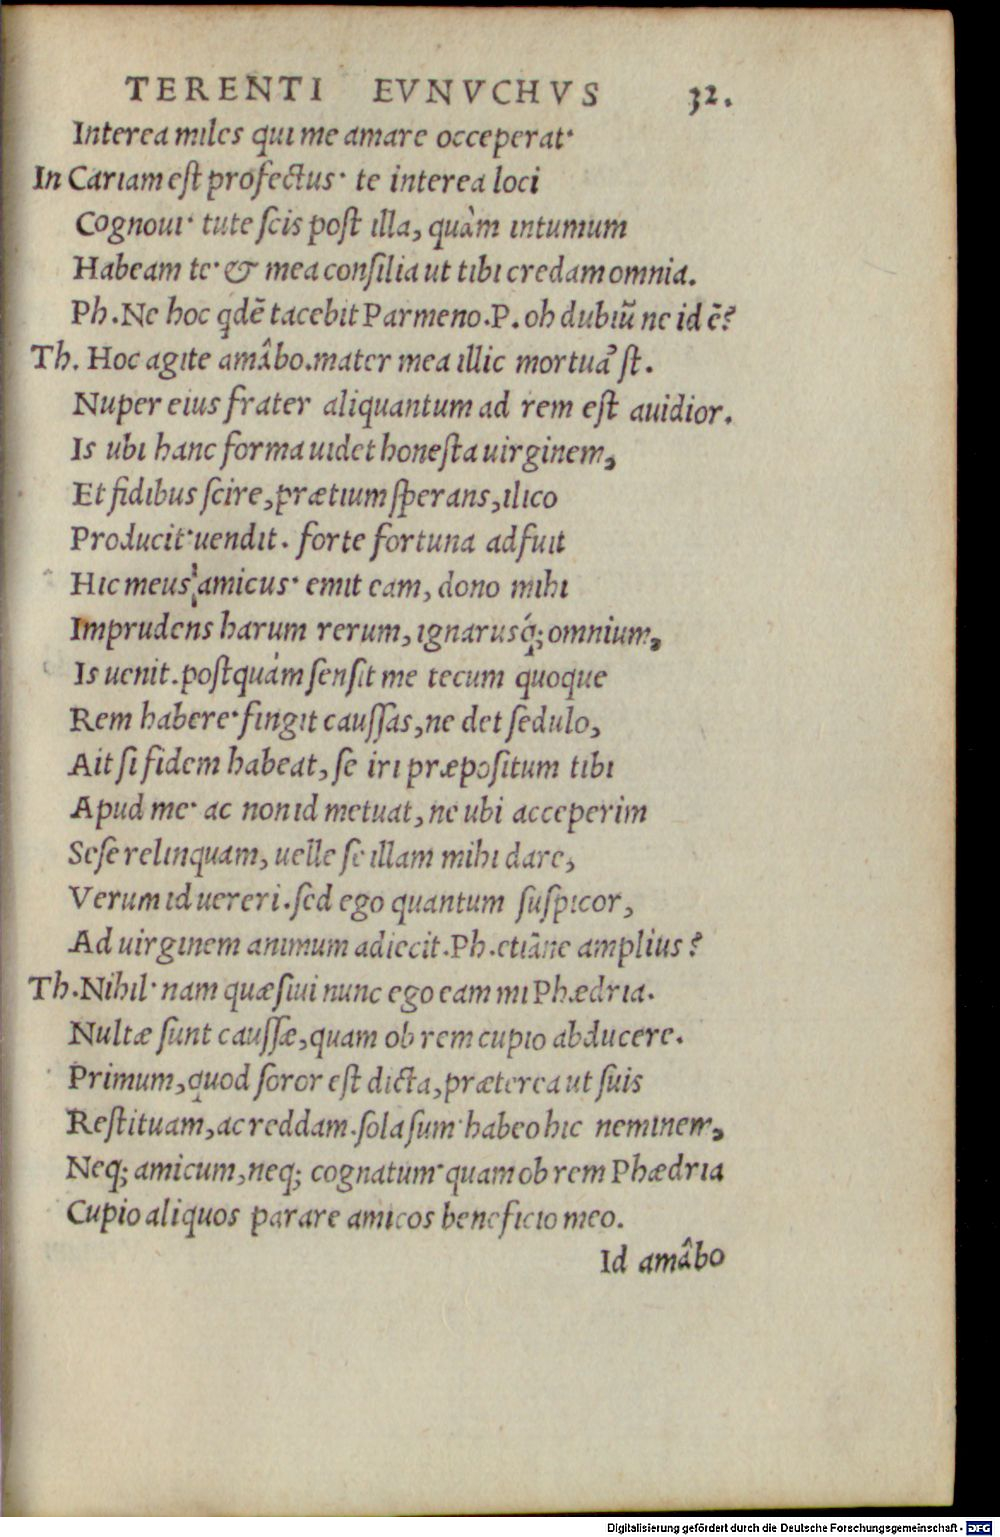 TERENTI EVNVCHVS 32.
Interea miles qui me amare occeperat·
In Cariam est profectus· te interea loci
Cognoui· tute scis post illa, quàm intumum
Habeam te· & mea consilia ut tibi credam omnia.
Ph. Ne hoc qdē tacebit Parmeno. P. oh dubiū ne id ē?
Th. Hoc agite amâbo. mater mea illic mortua' st.
Nuper eius frater aliquantum ad rem est auidior.
Is ubi hanc forma uidet honesta uirginem,
Et fidibus scire, prætium sperans, ilico
Producit· uendit. forte fortuna adfuit
Hic meus amicus· emit eam, dono mihi
Imprudens harum rerum, ignarusq́; omnium,
Is uenit. postquàm sensit me tecum quoque
Rem habere· fingit caussas, ne det sedulo,
Ait si fidem habeat, se iri præpositum tibi
Apud me· ac non id metuat, ne ubi acceperim
Sese relinquam, uelle se illam mihi dare,
Verum id uereri. sed ego quantum suspicor,
Ad uirginem animum adiecit. Ph. etiāne amplius?
Th. Nihil· nam quæsiui nunc ego eam mi Phædria.
Nultæ sunt caussæ, quam ob rem cupio abducere.
Primum, quod soror est dicta, præterea ut suis
Restituam, ac reddam. sola sum· habeo hic neminem,
Neq; amicum, neq; cognatum· quam ob rem Phædria
Cupio aliquos parare amicos beneficio meo.
Id amâbo
Digitalisierung gefördert durch die Deutsche Forschungsgemeinschaft - DFG